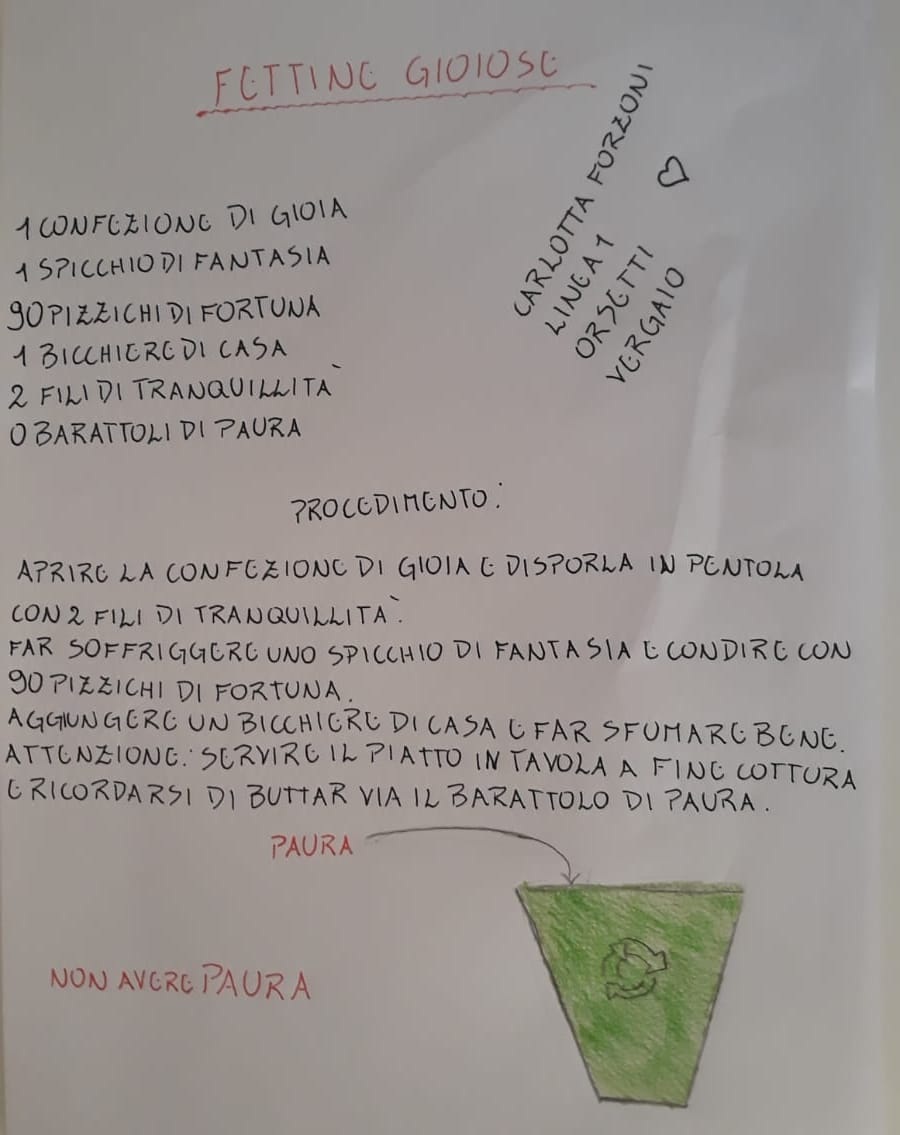 FETTINE GIOIOSE
CARLOTTA FORZONI
LINEA 1
ORSETTI
VERGAIO
1 CONFEZIONE DI GIOIA
1 SPICCHIO DI FANTASIA
90 PIZZICHI DI FORTUNA
1 BICCHIERE DI CASA
2 FILI DI TRANQUILLITÀ
0 BARATTOLI DI PAURA
PROCEDIMENTO:
APRIRE LA CONFEZIONE DI GIOIA E DISPORLA IN PENTOLA
CON 2 FILI DI TRANQUILLITÀ.
FAR SOFFRIGGERE UNO SPICCHIO DI FANTASIA E CONDIRE CON
90 PIZZICHI DI FORTUNA.
AGGIUNGERE UN BICCHIERE DI CASA E FAR SFUMARE BENE.
ATTENZIONE: SERVIRE IL PIATTO IN TAVOLA A FINE COTTURA
E RICORDARSI DI BUTTAR VIA IL BARATTOLO DI PAURA.
PAURA
NON AVERE PAURA